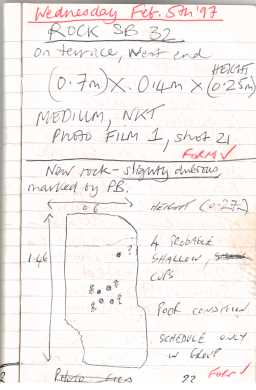 Wednesday Feb. 5th '97
ROCK SB 32
on terrace, West end
HEIGHT
(0.7m) X 0.4m X (0.25m)
MEDIUM, NKT
PHOTO FILM 1, shot 21
FORM ✓
New rock - slightly dubious
marked by PB.
0.6
HEIGHT (0.27?)
1.46
4 PROBABLE
SHALLOW,
CUPS
POOR CONDITION
SCHEDULE ONLY
IN GROUP
PHOTO FILM 22 FORM ✓